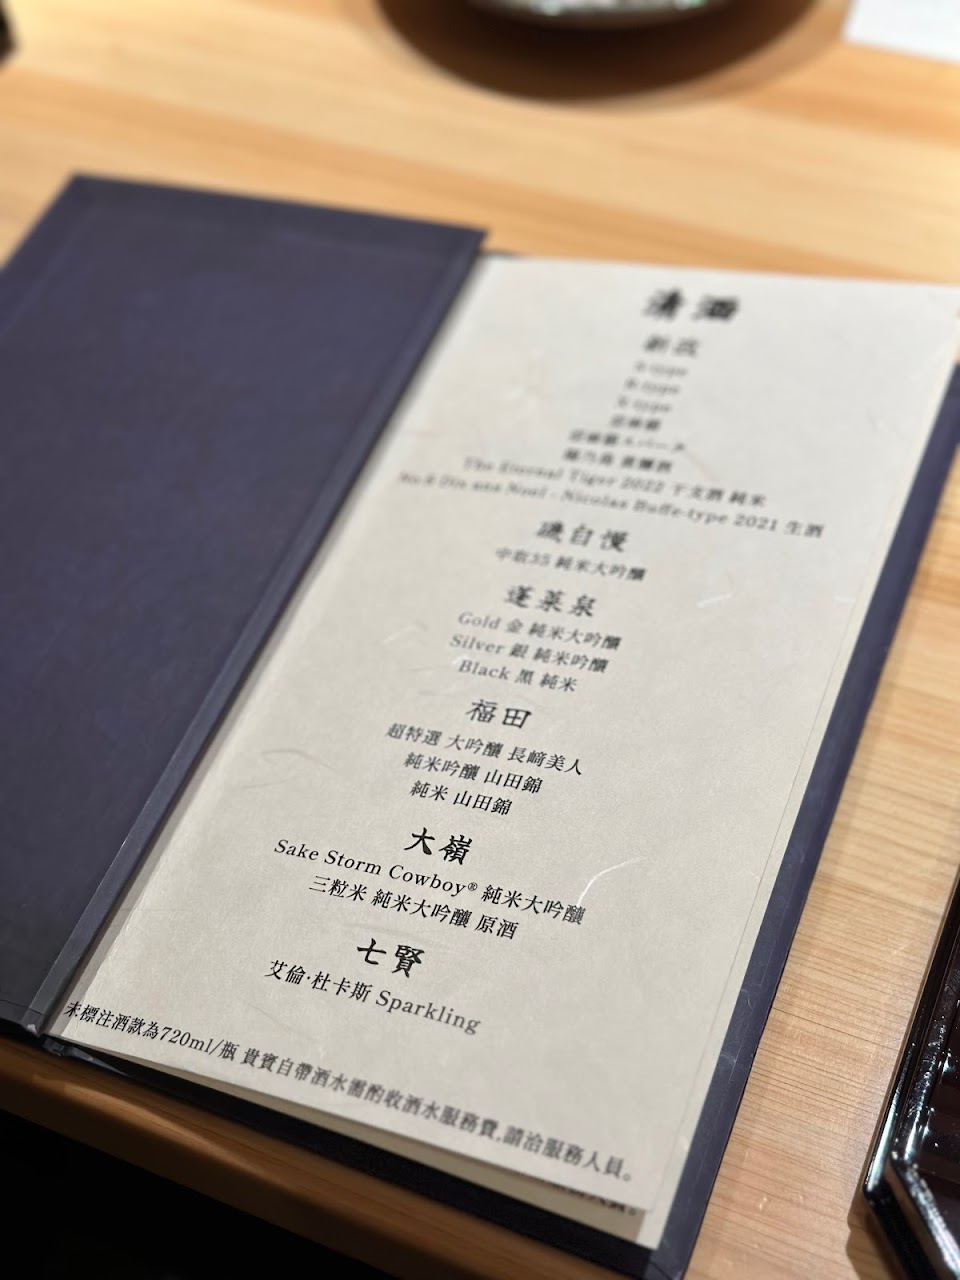 清酒
新政
A-type
R-type
S-type
亜麻猫
The Eternal Tiger 2022 干支酒 純米
No.6 Dix ans Noel - Nicolas Buffe-type 2021 生酒
磯自慢
中取35 純米大吟釀
蓬莱泉
Gold 金 純米大吟釀
Silver 銀 純米吟釀
Black 黑 純米
福田
超特選 大吟釀 長﨑美人
純米吟釀 山田錦
純米 山田錦
大嶺
Sake Storm Cowboy® 純米大吟釀
三粒米 純米大吟釀 原酒
七賢
艾倫·杜卡斯 Sparkling
未標注酒款為720ml/瓶 貴賓自帶酒水需酌收酒水服務費,請洽服務人員。